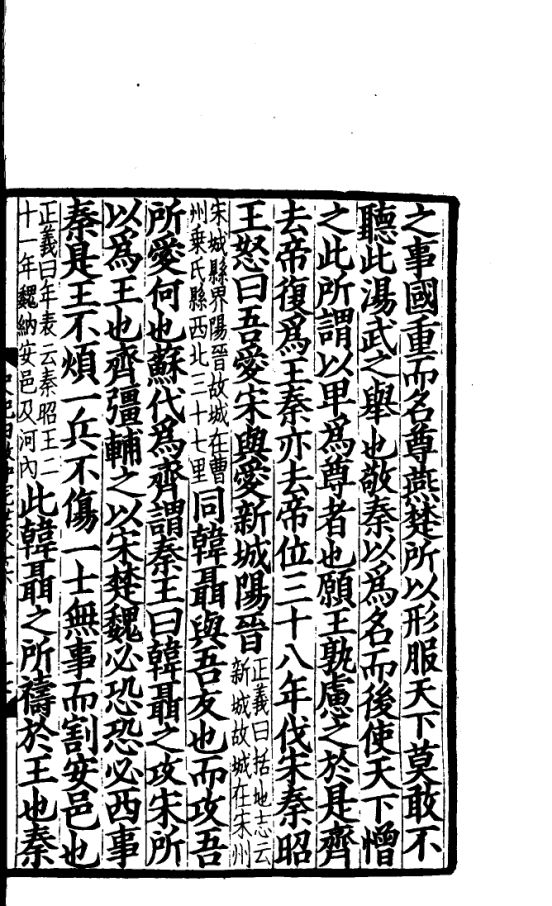 之事國重而名尊燕楚所以形服天下莫敢不
聽此湯武之舉也敬秦以為名而後使天下憎
之此所謂以卑為尊者也願王孰慮之於是齊
去帝復為王秦亦去帝位三十八年伐宋秦昭
王怒曰吾愛宋與愛新城陽晉正義曰括地志云
新城故城在宋州
宋城縣界陽晉故城在曹
州乗氏縣西北三十七里同韓聶與吾友也而攻吾
所愛何也蘇代為齊謂秦王曰韓聶之攻宋所
以為王也齊彊輔之以宋楚魏必恐恐必西事
秦是王不煩一兵不傷一士無事而割安邑也
正義曰年表云秦昭王二
十一年魏納安邑及河內此韓聶之所禱於王也秦